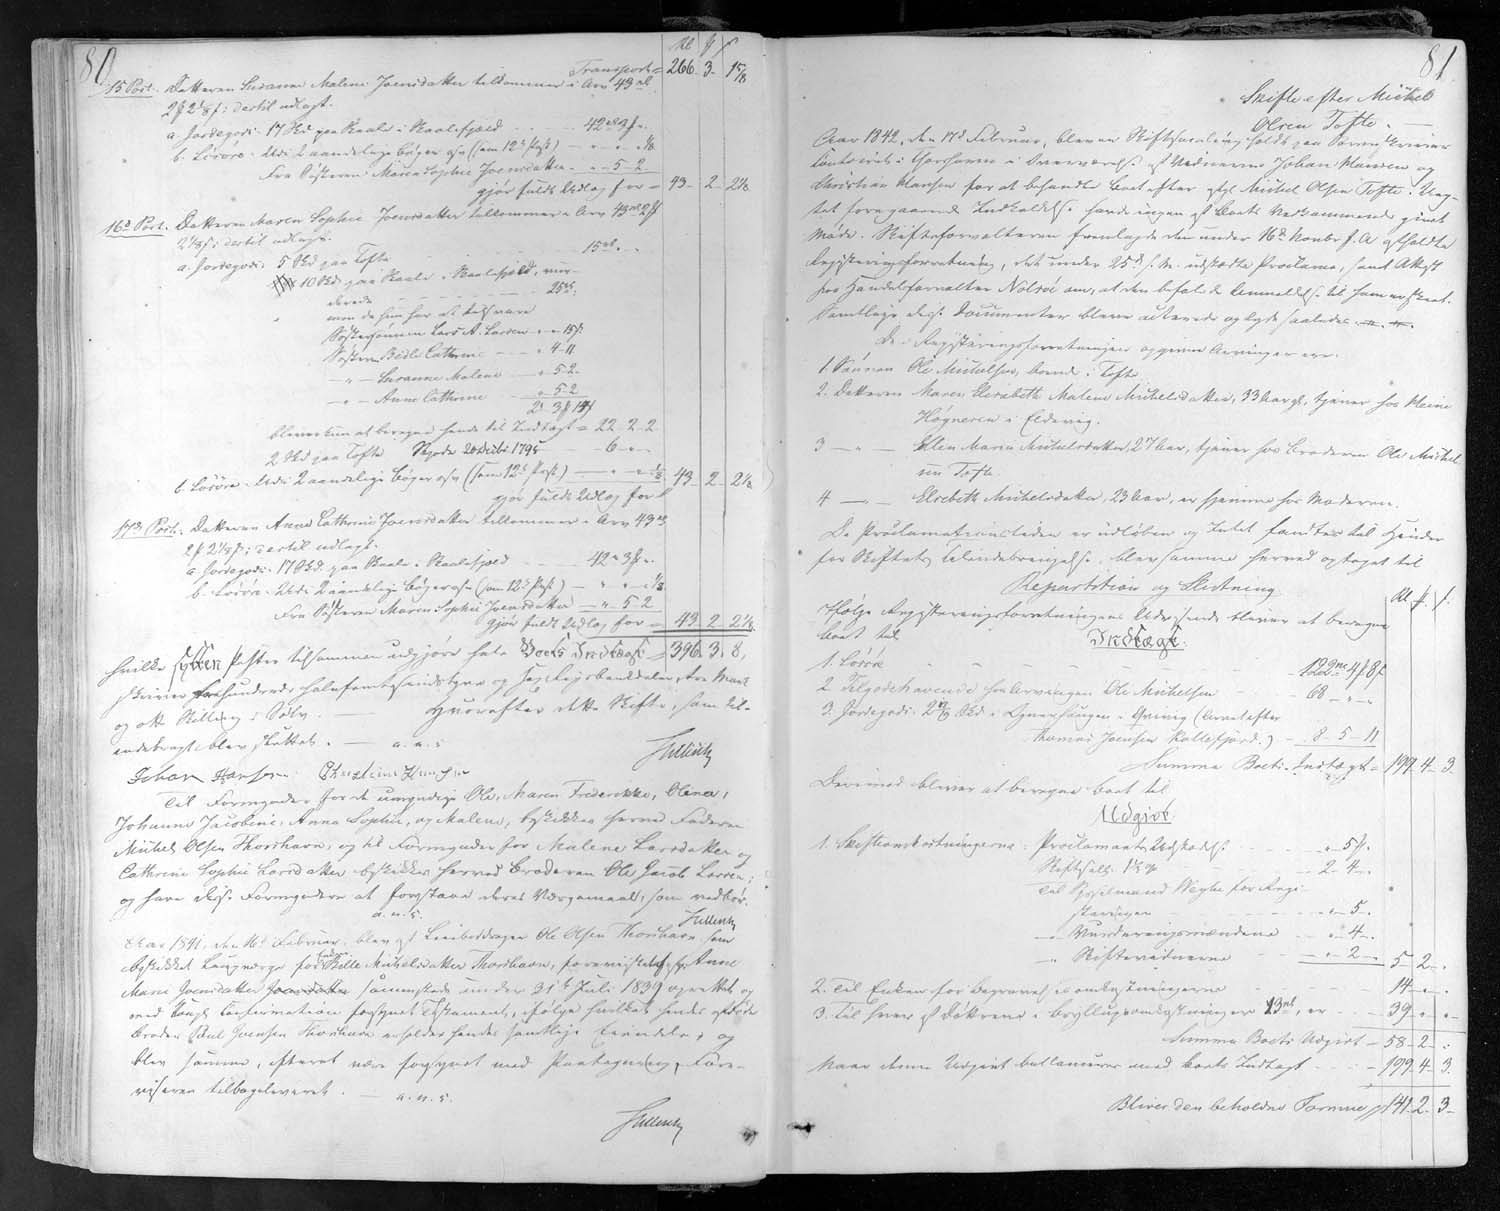 80
Rd ß
Transport = 266 3 15/8
15 Post. Datteren Susanne Malene Joensdatter tilkommer i Arv 43 rd
2 ß 2 1/8 f; dertil udlagt.
a. Jordegods. 17 Skd paa Kaale i Kaalefjord 42 rd 3 ß
b. Løsøre. Udi 2 aandelige Bøger osv (som 12te Post) - " - " 1/8
Fra Søsteren Maren Sophie Joensdatter - " - 5 - 2
gjør fuldt Udlæg for = 43 - 2 - 2 1/8
16d Post. Datteren Maren Sophie Joensdatter tilkommer i Arv 43 rd 2 ß
2 1/8 f; dertil udlagt.
a. Jordegods. 5 Skd paa Tofte 15 rd
10 Skd paa Kaale i Kaalefjord, vur-
derede 25 rd
men da hun har at tilsvare
Søstersønnen Lars A. Larsen " " 15 f.
Søsteren Bedle Cathrine " 4 - 11
- " - Susanne Malene " 5 - 2
- " - Anne Cathrine " 5 - 2
2 3 ß 14 f
bliver kun at beregne hende til Indtægt = 22 - 2 - 2
2 Skd paa Tofte Skjøde 20 Decbr 1795 - 6 - "
b. Løsøre. Udi 2 aandelige Bøger osv (som 12te Post) 1/8
gjør fuldt Udlæg for 43 2 2 1/8
17de Post. Datteren Anna Cathrine Joensdatter tilkommer i Arv 43 rd
2 ß 2 1/8 f; dertil udlagt.
a. Jordegods. 17 Skd. paa Kaale i Kaalefjord 42 rd 3 ß
b. Løsøre. Udi 2 aandelige Bøger osv (som 12te Post) - " " 1/8
Fra Søsteren Maren Sophie Joensdatter - " - 5 - 2
gjør fuldt Udlæg for = 43 2 2 1/8
hvilke sytten Poster tilsammen udgjøre hele Boets Indtægt = 396 3 8,
skriver trehundrede halvfemtesindstyve og sex Rigsbankdaler, tre Mark
og otte Skilling i Sølv. — Hvorefter dette Skifte, som til-
endebragt blev sluttet. — a. u. s.
Johan Hansen. Christian Hansen
Til Formynder for de umyndige Ole, Maren Frederikke, Olena,
Johanne Jacobine, Anna Sophie, og Malene, beskikkes herved Faderen
Michel Olsen Thorshavn, og til Formynder for Malene Larsdatter og
Cathrine Sophie Larsdatter beskikkes herved Broderen Ole Jacob Larsen;
og have disse Formyndere at forestaae deres Værgemaal, som vedbør.
a. u. s.
Aar 1841, den 16d Februar, blev af Ole Olsen Thorshavn som
beskikket Laugværge for Enken Bille Michelsdatter Thorshavn, foreviist et af Anne
Marie Joensdatter sammesteds under 31te Juli 1839 oprettet og
med Kongl. Confirmation forsynet Testament, ifølge hvilket hendes afdøde
Broder Poul Joensen Thorshavn erholder hendes samtlige Eiendele; og
blev samme, efterat være forsynet med Paategning, Fore-
viseren tilbageleveret. — a. u. s.
81
Skifte efter Michel
Olsen Tofte. —
Aar 1842, den 17d Februar, blev en Skiftesamling holdt paa Sorenskriver
Contoiret i Thorshavn i Overværelse af Vidnerne Johan Hansen og
Christian Hansen for at behandle Boet efter afg. Michel Olsen Tofte. Uag-
tet foregaaende Indkaldelse havde ingen af Boets Vedkommende givet
Møde. Skifteforvalteren fremlagde den under 16d Novbr f. A. afholdte
Registreringsforretning, det under 25d s. M. udstædte Proclama, samt Attest
fra Handelsforvalter Nolsøe om, at den befalede Anmeldelse til ham er skeet.
Samtlige disse Documenter bleve acterede og lyde saaledes.
De i Registreringsforretningen opgivne Arvinger ere.
1. Sønnen Ole Michelsen, boende i Tofte
2. Datteren Maren Elisabeth Malene Michelsdatter, 33 Aar gl, tjener hos Heine
Høgnesen i Eldevig.
3 — " — Ellen Maria Michelsdatter, 27 Aar, tjener hos Broderen Ole Michelsen
Tofte.
4 — " — Elsebeth Michelsdatter, 23 Aar, er hjemme hos Moderen.
Da Proclamationstiden er udløben og Intet fandtes til Hinder
for Skiftets Tilendebringelse, blev samme herved optaget til
Repartition og Slutning
Rd ß f.
Ifølge Registreringsforretningens Udvisende bliver at beregne
Boet til Indtægt.
1. Løsøre 122 rd 4 ß 8 f
2. Tilgodehavende hos Arvingen Ole Michelsen 68 - " - "
3. Jordegods. 2 Skd i Gjnerhaugen i Qvivig (Arvet efter
Thomas Joensen Kollefjord.) 8 - 5 - 11
Summa Boets Indtægt = 199 4 3.
Derimod bliver at beregne Boet til
Udgivt.
1. Skifteomkostningerne: Proclamaets Udstædelse " 5 ß.
Skiftesalt. 1 % 2 4
Til Sysselmand Weyhe for Regi-
streringen " 5 -
- " - Vurderingsmændene " 4 -
" Skiftevidnerne " 2 - 5 2 -
2. Til Enken for Begravelsesomkostningerne 14 - " -
3. Til hver af Døttrene i Bryllupsomkostninger 13 rd, er 39 " -
Summa Boets Udgivt = 58 - 2 -
Naar denne Udgivt ballanceres med Boets Indtægt 199 4 3.
Bliver den beholdne Formue = 141 2 3 -